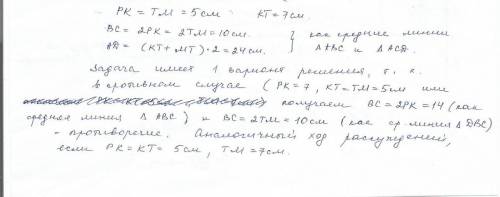 PK = TM = 5 см   KT = 7 см.
BC = 2PK = 2TM = 10 см. } как средние линии
AD = (KT + MT) · 2 = 24 см. } △ABC и △ACD.
Задача имеет 1 вариант решения, т. к.
в противном случае (PK = 7, KT = TM = 5 см или
получаем BC = 2PK = 14 (как
средняя линия △ ABC) и BC = 2TM = 10 см (как ср. линия △ DBC)
- противоречие. Аналогичный ход рассуждений,
если PK = KT = 5 см, TM = 7 см.